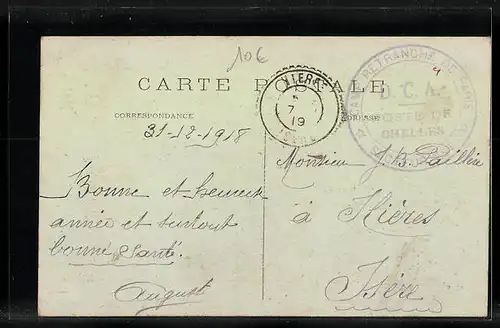 106
CARTE POSTALE
CORRESPONDANCE
ADRESSE
HIERES
7
19
ISERE
CAMP RETRANCHÉ DE PARIS
D.C.A.
POSTE DE
CHELLES
31-12-1918
Monsieur J B.
Bonne et heureuse
année et surtout
bonne santé.
August
à Hières
Isère